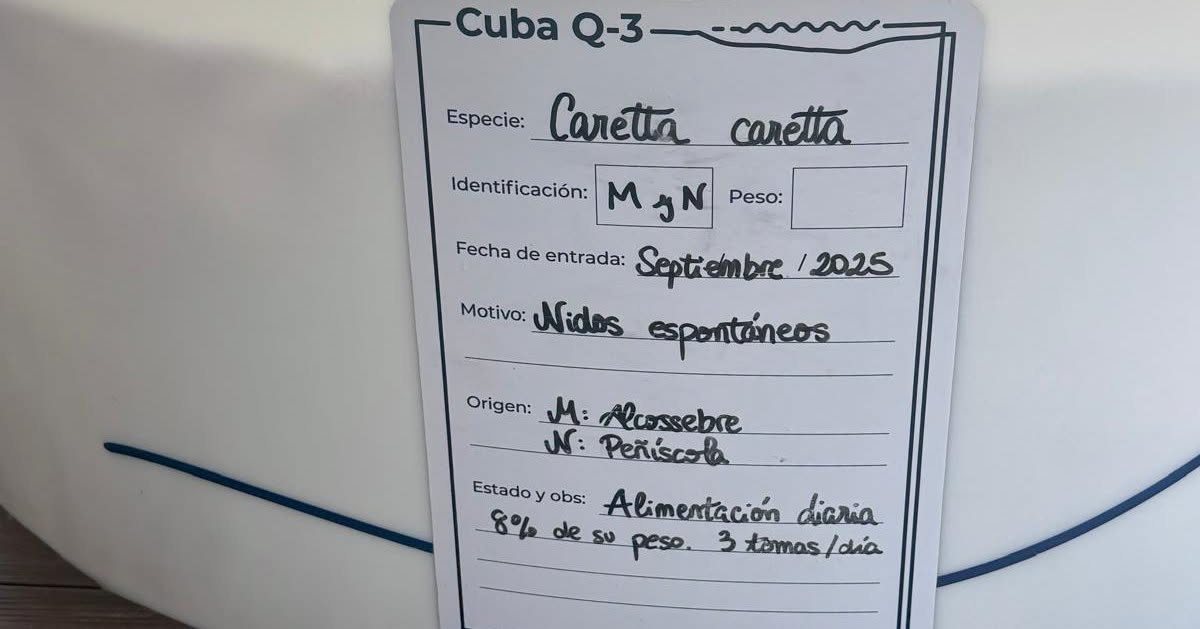 Cuba Q-3
Especie: Caretta caretta
Identificación: M y N Peso:
Fecha de entrada: Septiembre / 2025
Motivo: Nidos espontáneos
Origen: M: Alcossebre
N: Peñíscola
Estado y obs: Alimentación diaria
8% de su peso. 3 tomas/día